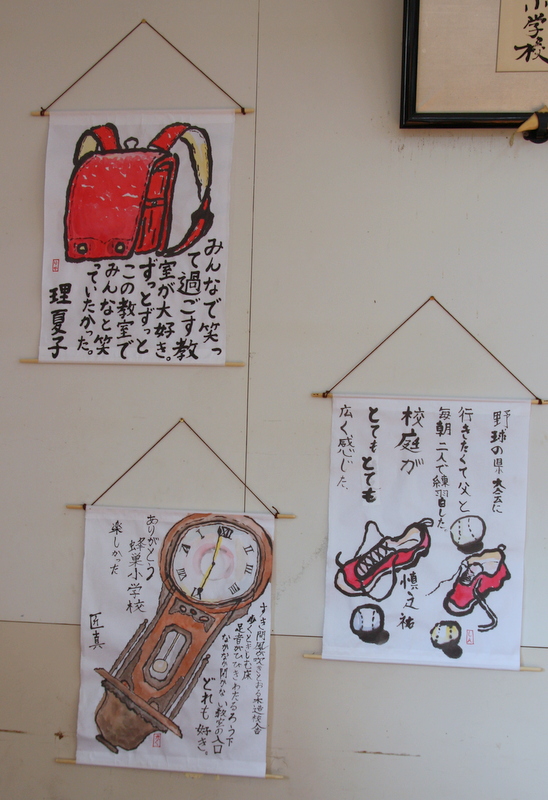 小学校
みんなで笑っ
て過ごす教
室が大好き。
ずっとずっと
この教室で
みんなと笑
っていたかった。
理夏子
野球の県大会に
行きたくて父と
毎朝二人で練習した。
校庭が
とてもとても
広く感じた。
慎之祐
すき間風が吹きとおる木造校舎
歩くときしむ床
足音がひびきわたるろう下
なかなか開かない教室の入口
どれも好き。
ありがとう
蜂巣小学校
楽しかった
匠真